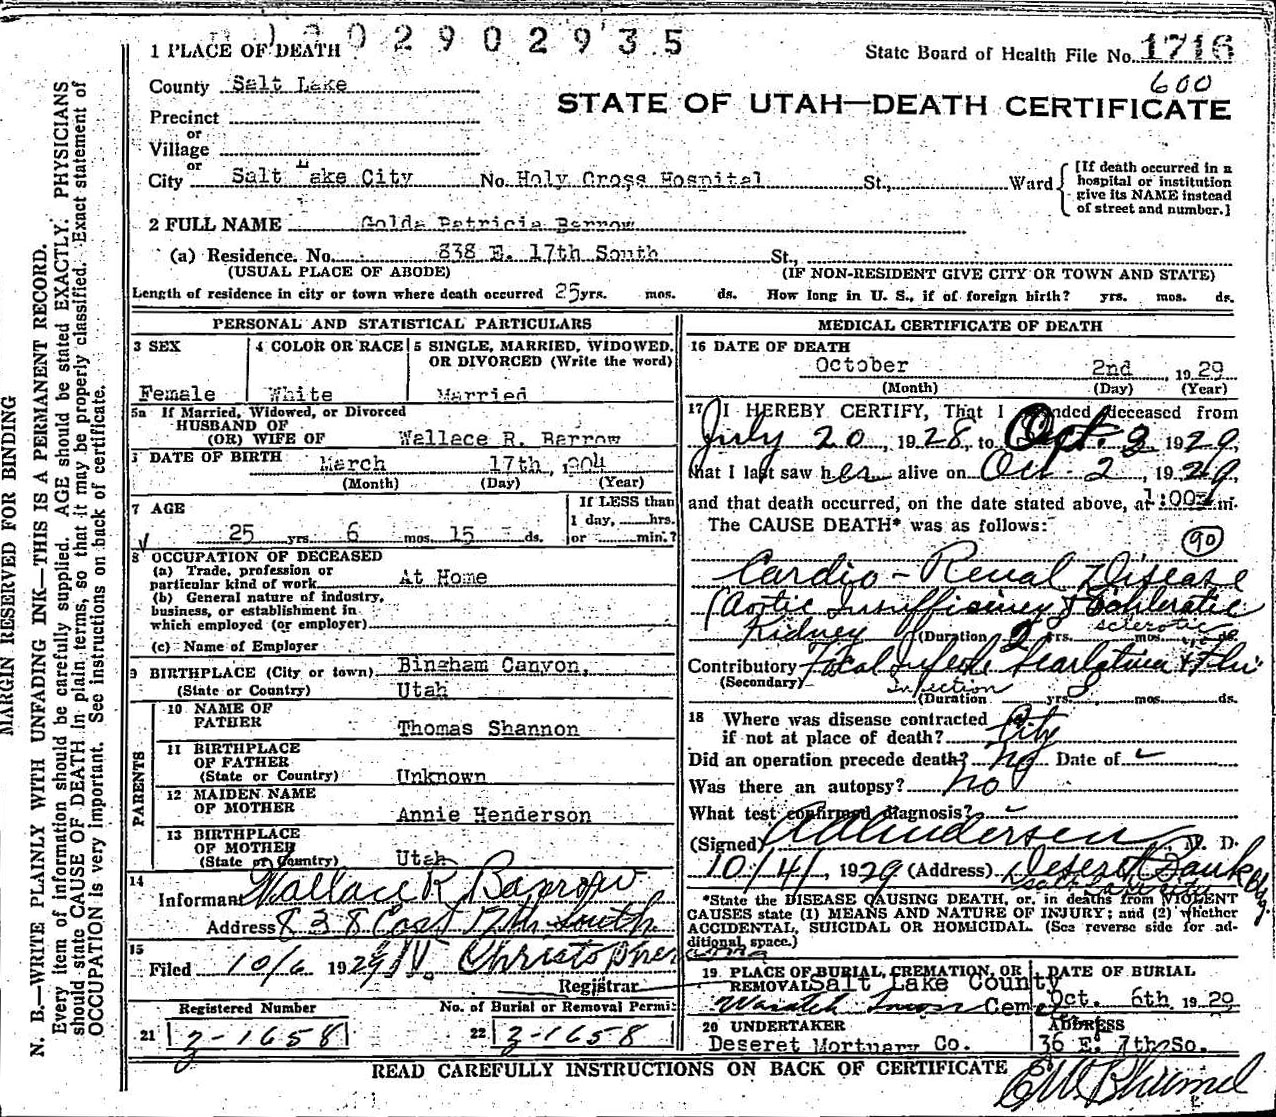 02902935
1 PLACE OF DEATH
State Board of Health File No. 1716
600
County Salt Lake
STATE OF UTAH—DEATH CERTIFICATE
Precinct
or
Village
or
City Salt Lake City No. Holy Cross Hospital St., Ward
[If death occurred in a hospital or institution give its NAME instead of street and number.]
2 FULL NAME Golda Patricia Barrow
(a) Residence. No. 838 E. 17th South St.,
(USUAL PLACE OF ABODE) (IF NON-RESIDENT GIVE CITY OR TOWN AND STATE)
Length of residence in city or town where death occurred 25 yrs. mos. ds. How long in U. S., if of foreign birth? yrs. mos. ds.
PERSONAL AND STATISTICAL PARTICULARS
3 SEX 4 COLOR OR RACE 5 SINGLE, MARRIED, WIDOWED, OR DIVORCED (Write the word)
Female White Married
5a If Married, Widowed, or Divorced
HUSBAND OF
(OR) WIFE OF Wallace R. Barrow
DATE OF BIRTH March 17th, 1904
(Month) (Day) (Year)
7 AGE If LESS than
1 day, hrs.
25 yrs. 6 mos. 15 ds. or min.?
8 OCCUPATION OF DECEASED
(a) Trade, profession or
particular kind of work At Home
(b) General nature of industry,
business, or establishment in
which employed (or employer)
(c) Name of Employer
9 BIRTHPLACE (City or town) Bingham Canyon,
(State or Country) Utah
PARENTS
10 NAME OF
FATHER Thomas Shannon
11 BIRTHPLACE
OF FATHER
(State or Country) Unknown
12 MAIDEN NAME
OF MOTHER Annie Henderson
13 BIRTHPLACE
OF MOTHER
(State or Country) Utah
14
Informant Wallace R Barrow
Address 838 East 17th South
15
Filed 10/6 1929
Registrar
Registered Number No. of Burial or Removal Permit
21 2-1658 22 2-1658
MEDICAL CERTIFICATE OF DEATH
16 DATE OF DEATH
October 2nd, 1929
(Month) (Day) (Year)
17 I HEREBY CERTIFY, That I attended deceased from
July 20, 1928 to Oct. 2 1929,
that I last saw her alive on Oct. 2, 1929
and that death occurred, on the date stated above, at 1:00 m.
The CAUSE DEATH* was as follows:
90
Cardio-Renal Disease
(Aortic Insufficiency &
sclerotic
Kidney (Duration 2 yrs. mos. ds.
Contributory Focal Infec. Scarlatina & Flu
(Secondary) Infection
(Duration yrs. mos. ds.
18 Where was disease contracted
if not at place of death? City
Did an operation precede death? no Date of
Was there an autopsy? no
What test confirmed diagnosis?
(Signed) , M. D.
10/4/, 1929 (Address) Deseret Bank Bldg.
Salt Lake City
*State the DISEASE CAUSING DEATH, or, in deaths from VIOLENT
CAUSES state (1) MEANS AND NATURE OF INJURY; and (2) whether
ACCIDENTAL, SUICIDAL OR HOMICIDAL. (See reverse side for ad-
ditional space.)
19 PLACE OF BURIAL, CREMATION, OR REMOVAL DATE OF BURIAL
Salt Lake County
Wasatch Lawn Cem Oct. 6th 1929
20 UNDERTAKER ADDRESS
Deseret Mortuary Co. 36 E. 7th So.
READ CAREFULLY INSTRUCTIONS ON BACK OF CERTIFICATE
MARGIN RESERVED FOR BINDING
N. B.—WRITE PLAINLY WITH UNFADING INK—THIS IS A PERMANENT RECORD.
Every item of information should be carefully supplied. AGE should be stated EXACTLY. PHYSICIANS
should state CAUSE OF DEATH in plain terms, so that it may be properly classified. Exact statement of
OCCUPATION is very important. See instructions on back of certificate.